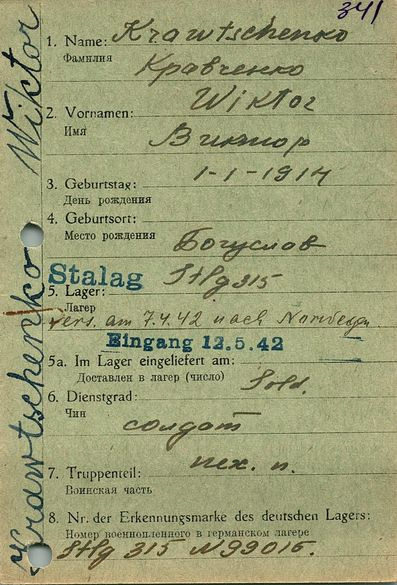 341
1. Name: Krawtschenko
Фамилия
Кравченко
2. Vornamen: Wiktor
Имя
Виктор
3. Geburtstag: 1-1-1914
День рождения
4. Geburtsort:
Место рождения
Богуслав
Stalag Stlg 315
5. Lager:
Лагер
vers. am 7.4.42 nach Norwegen
Eingang 12.5.42
5a. Im Lager eingeliefert am:
Доставлен в лагер (число)
Sold.
6. Dienstgrad:
Чин
солдат
7. Truppenteil: пех. п.
Воинская часть
8. Nr. der Erkennungsmarke des deutschen Lagers:
Номер военнопленного в германском лагере
Stlg 315 N 99016.
Krawtschenko Wiktor